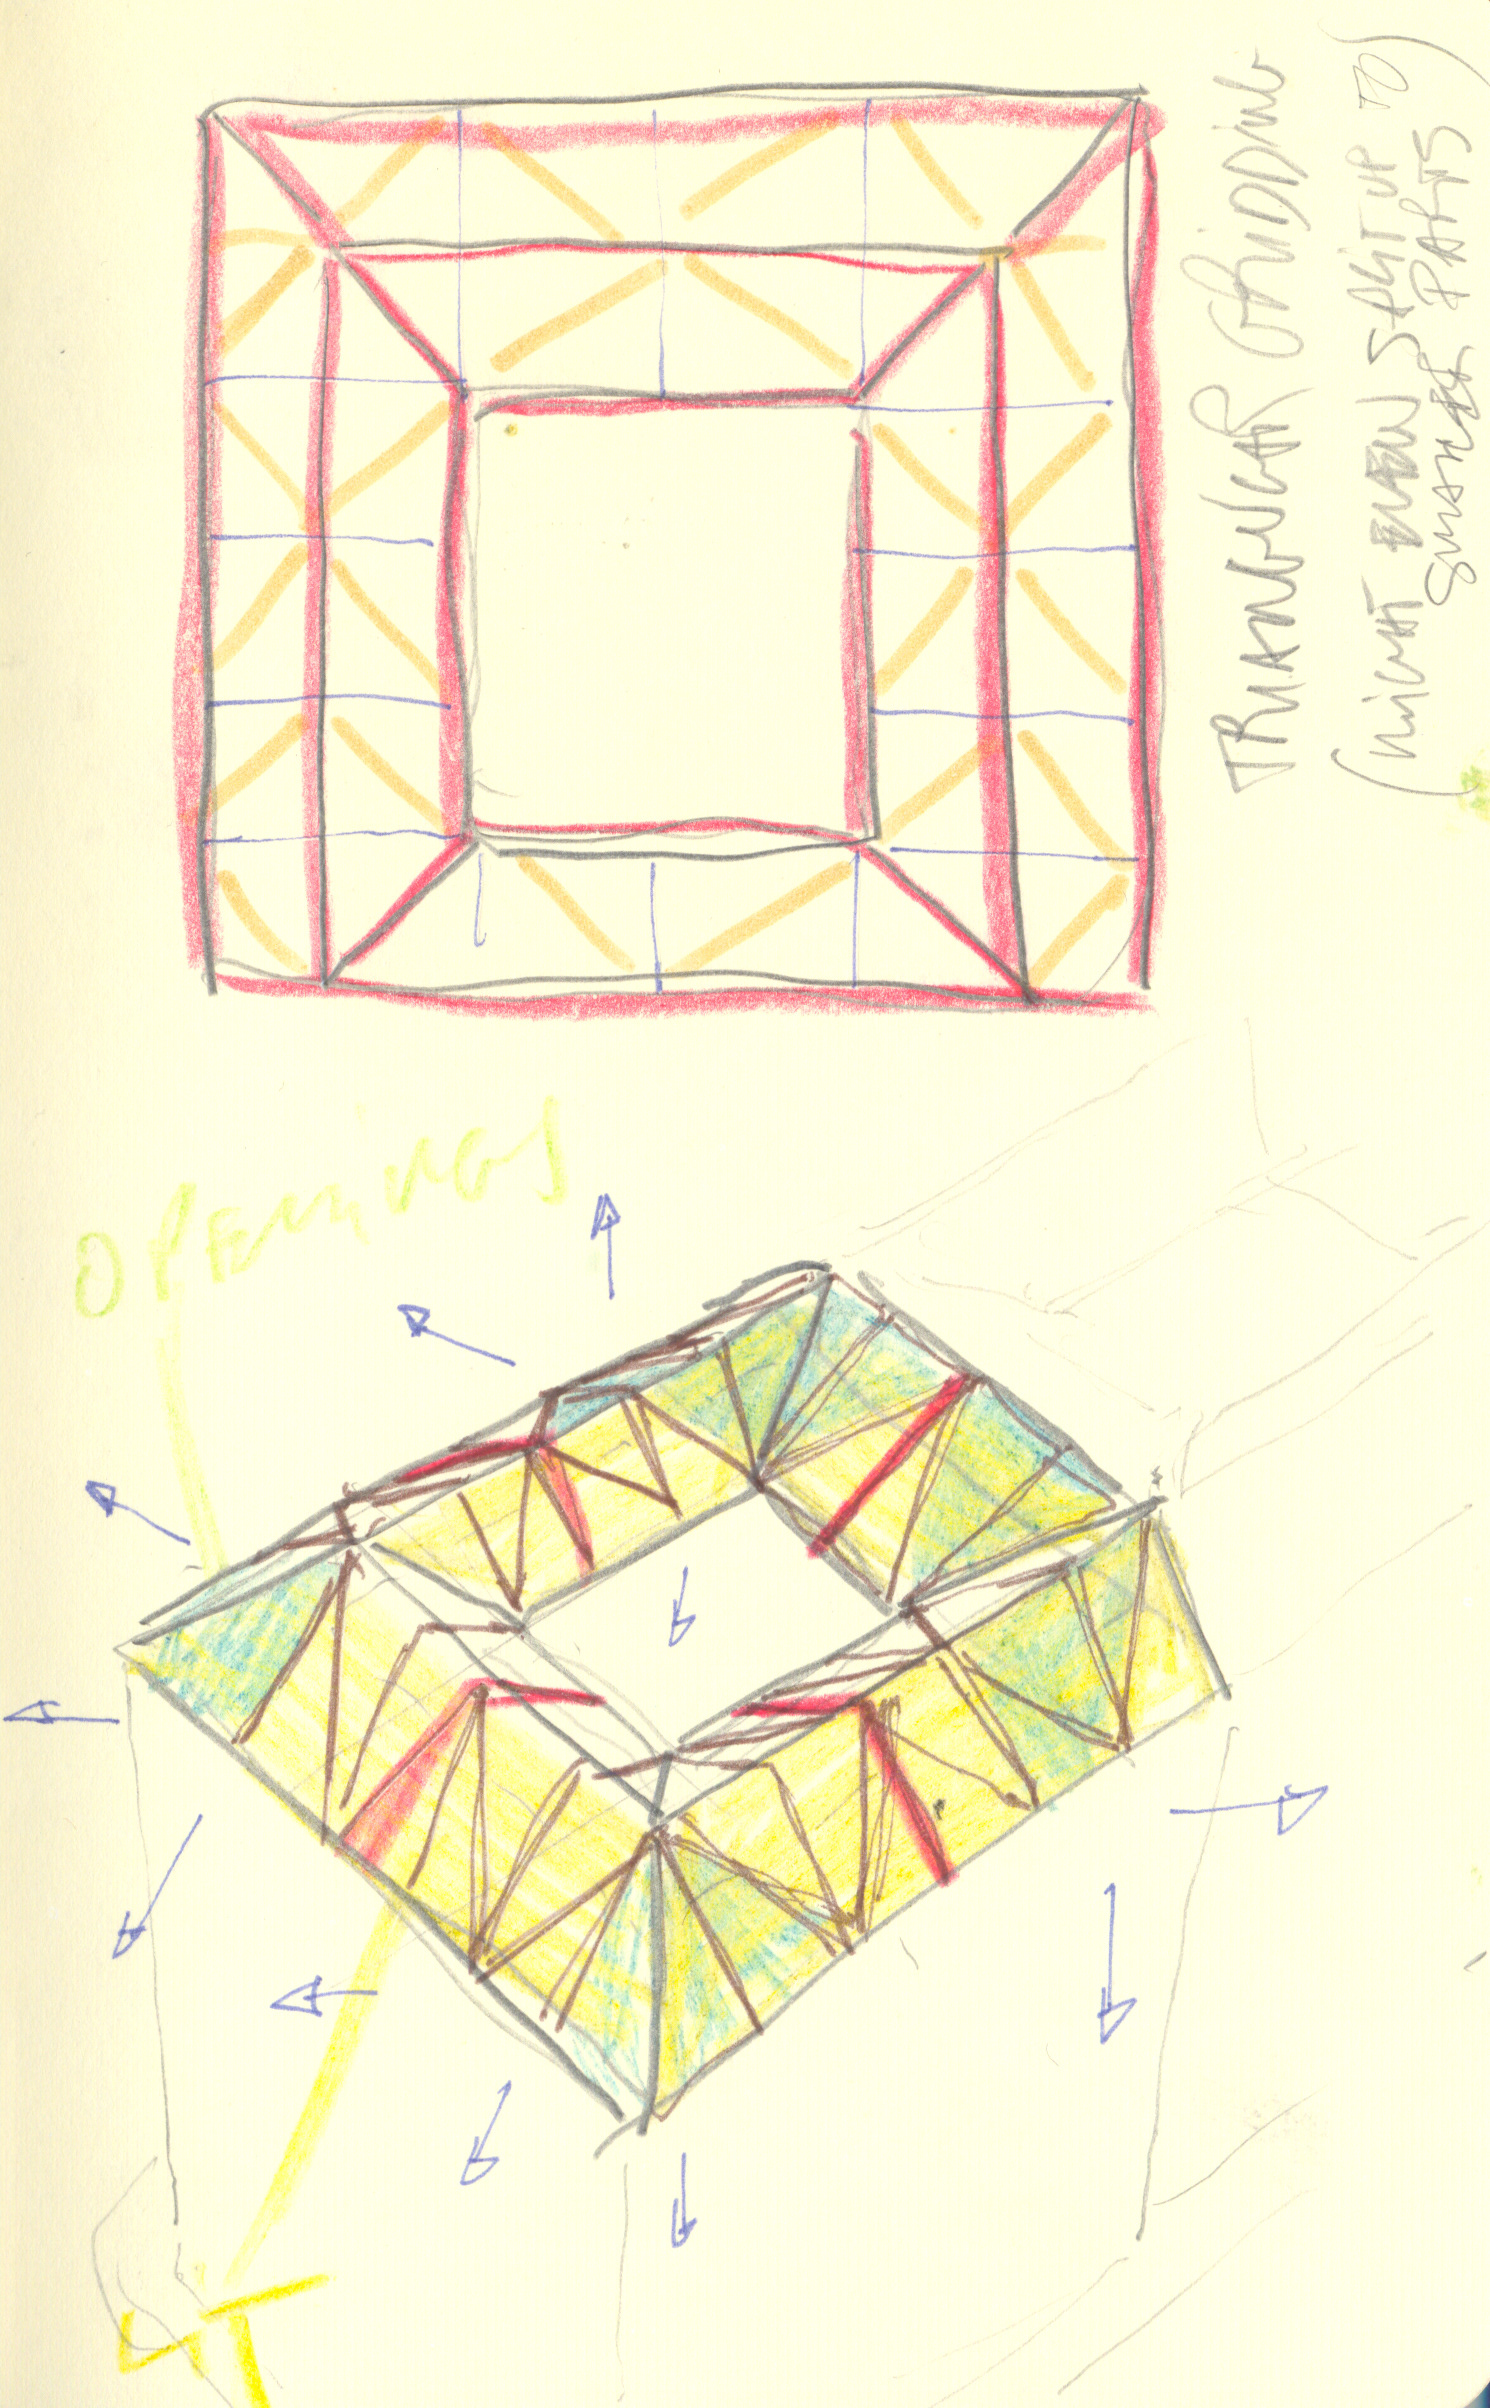 TRIANGULAR GRIDDING
(MIGHT EVEN SPLIT UP TO
SMALLER PARTS)
OPENINGS